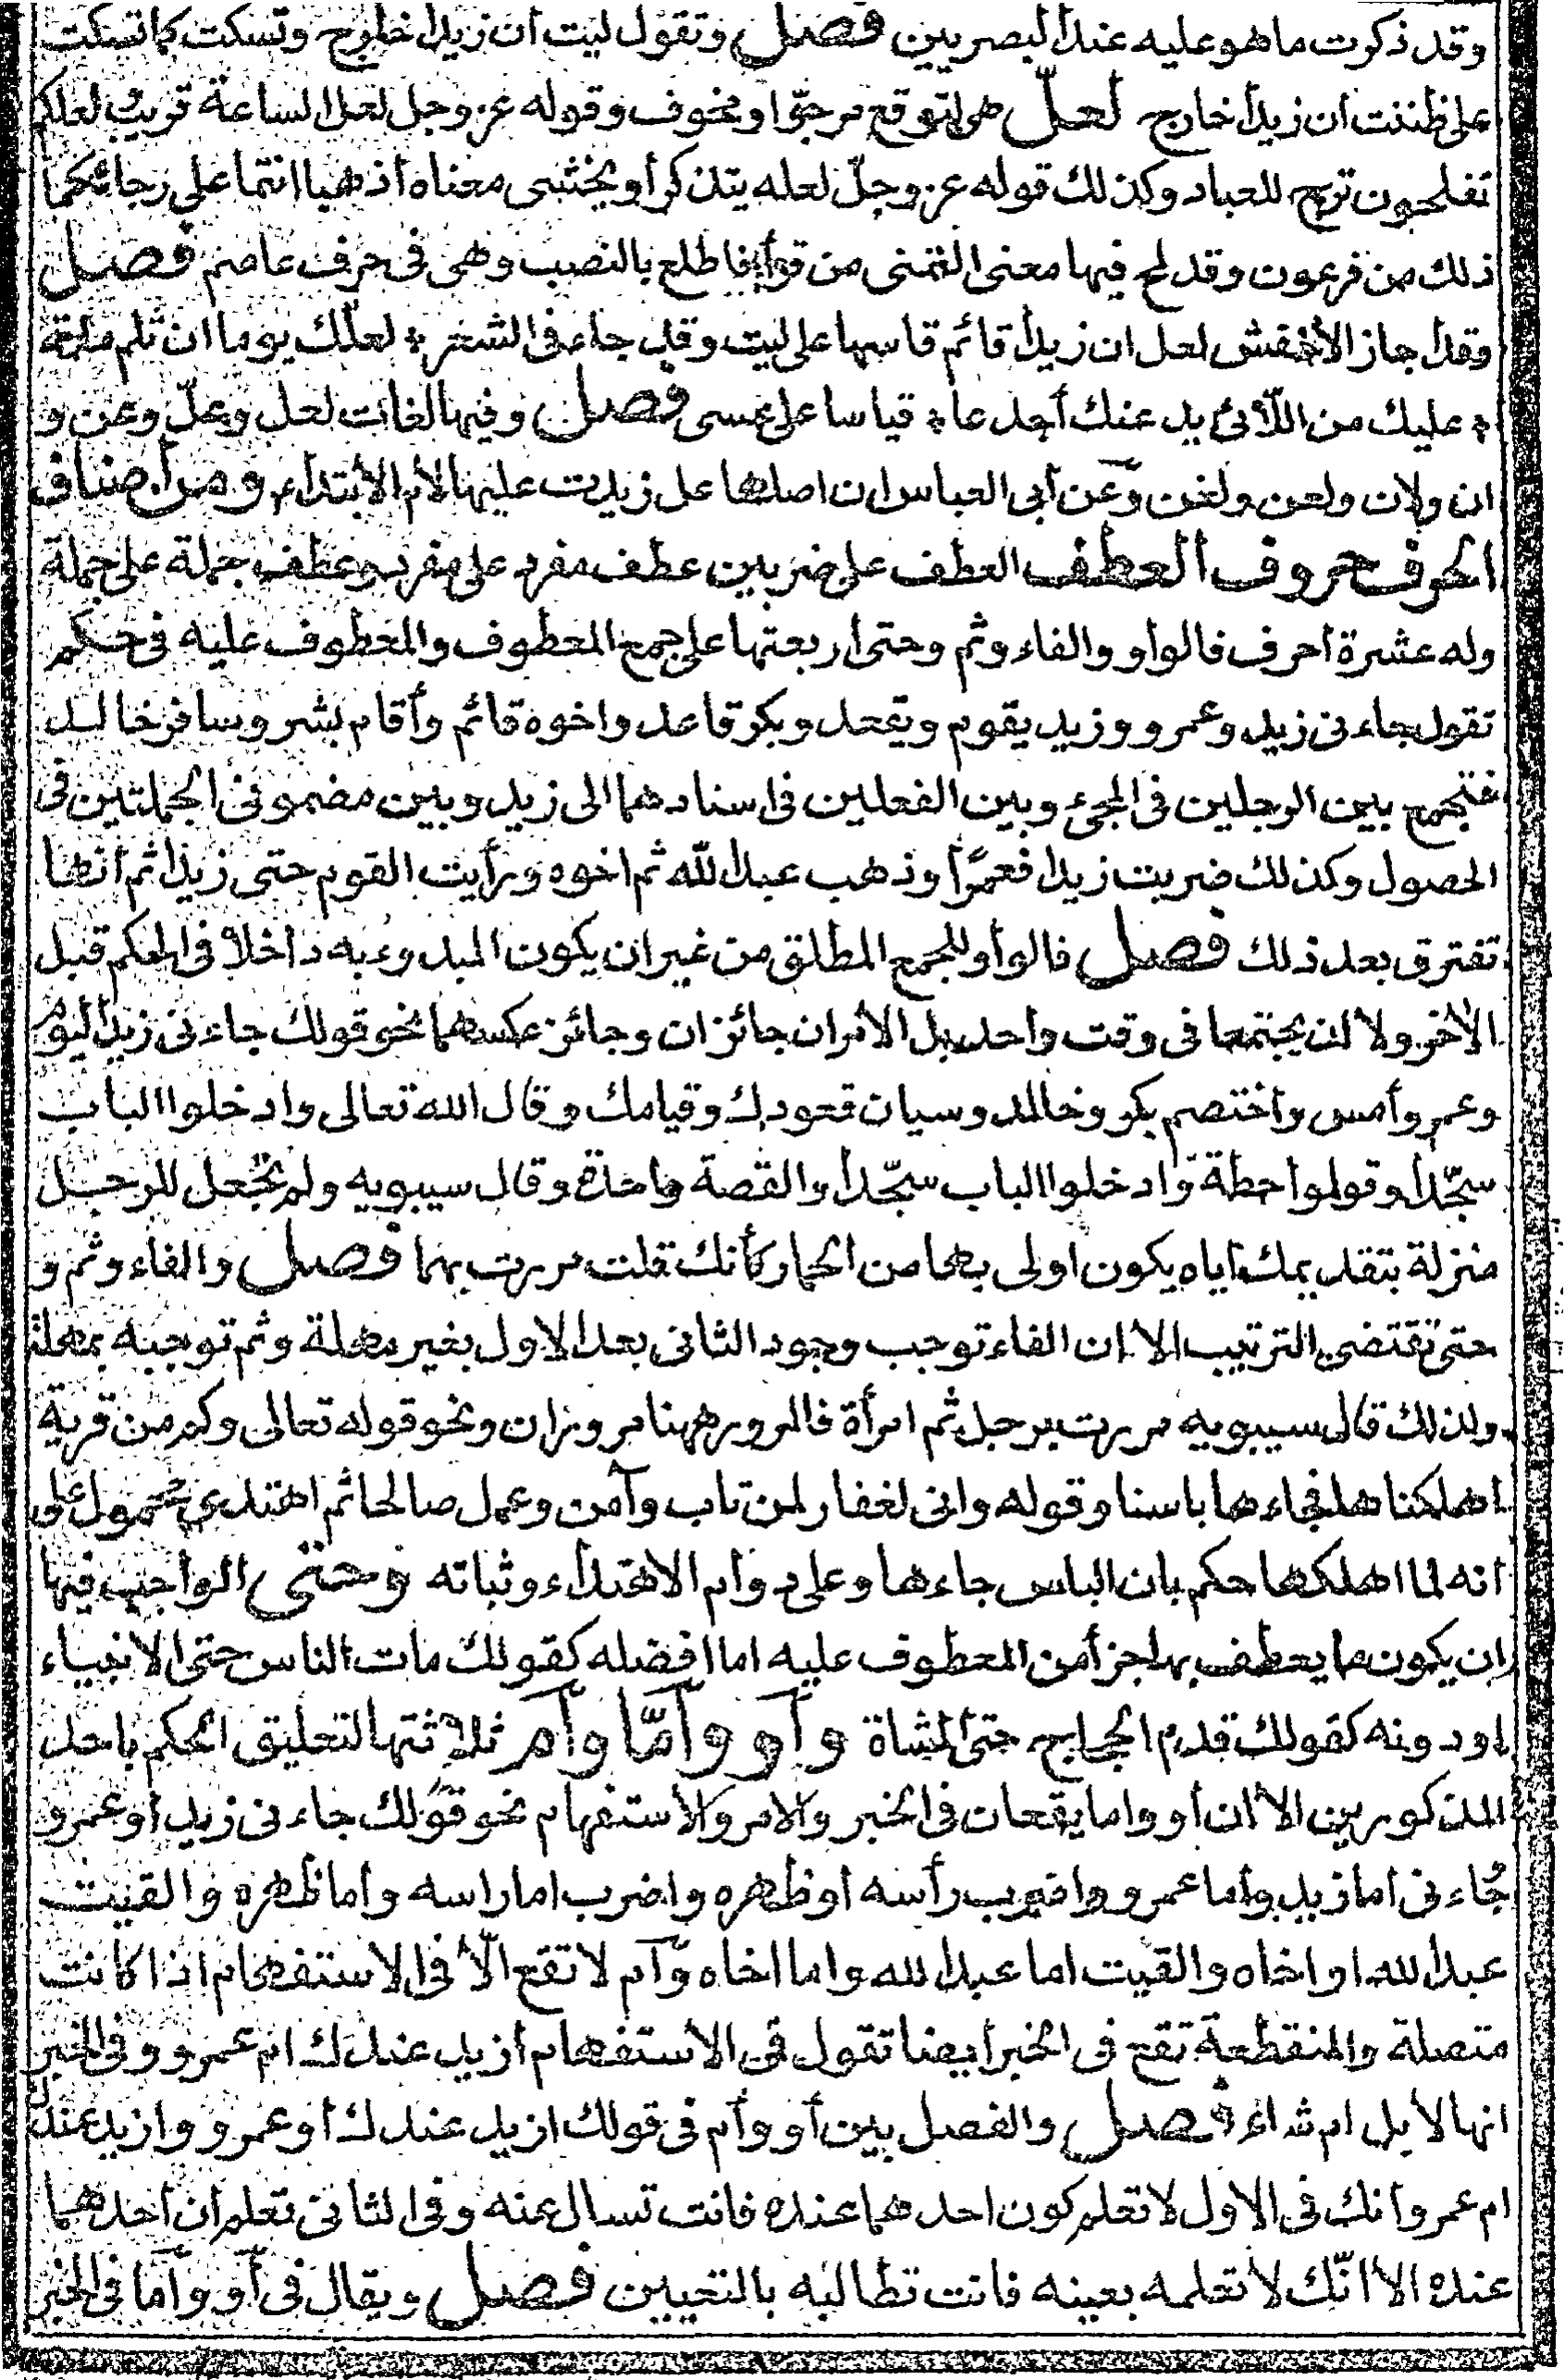 وقد ذكرت ما هو عليه عند البصريين فصل وتقول ليت أن زيدا خارج وتسكت كما تسكت
على ظننت أن زيدا خارج لعل هى لتوقع مرجوّ او مخوف وقوله عز وجل لعل الساعة قريب لعلكم
تفلحون ترج للعباد وكذلك قوله عز وجلّ لعله يتذكر أو يخشى معناه أذهبا انتما على رجائكما
ذلك من فرعون وقد لمح فيها معنى التمنى من قرأ فاطلع بالنصب وهى فى حرف عاصم فصل
وقد أجاز الأخفش لعل ان زيدا قائم قاسها على ليت وقد جاء فى الشعر * لعلّك يوما ان تلم ملمة
* عليك من اللّائى يدعنك أجدعا * قياسا على عسى فصل وفيها لغات لعل وعلّ وعن و
ان ولان ولعن ولغن وعن أبى العباس ان اصلها عل زيدت عليها لام الأبتداء ومن أصناف
الحرف حروف العطف العطف على ضربين عطف مفرد على مفرد وعطف جملة على جملة
وله عشرة احرف فالواو والفاء وثم وحتى اربعتها على جمع المعطوف والمعطوف عليه فى حكم
تقول جاءنى زيد وعمرو وزيد يقوم ويقعد وبكر قاعد واخوه قائم وأقام بشر وسافر خالد
فتجمع بين الرجلين فى المجئ وبين الفعلين فى اسنادهما الى زيد وبين مضمونى الجملتين فى
الحصول وكذلك ضربت زيدا فعمرًا وذهب عبد الله ثم اخوه ورأيت القوم حتى زيدا ثم انها
تفترق بعد ذلك فصل فالواو للجمع المطلق من غير ان يكون المبدوء به داخلا فى الحكم قبل
الأخر ولا ان يجتمعا فى وقت واحد بل الأمران جائزان وجائز عكسهما نحو قولك جاءنى زيد اليوم
وعمرو أمس واختصم بكر وخالد وسيان قعودك وقيامك وقال الله تعالى وادخلوا الباب
سجّدا وقولوا حطة وادخلوا الباب سجّدا والقصة واحدة وقال سيبويه ولم تجعل للرجل
منزلة بتقديمك اياه يكون اولى بها من الحمار كأنك قلت مررت بهما فصل والفاء وثم و
حتى تقتضى الترتيب الا ان الفاء توجب وجود الثانى بعد الاول بغير مهلة وثم توجبه بمهلة
ولذلك قال سيبويه مررت برجل ثم امرأة فالمرور ههنا مروران ونحو قوله تعالى وكم من قرية
اهلكناها فجاءها باسنا وقوله وانى لغفار لمن تاب وآمن وعمل صالحا ثم اهتدى محمول على
انه لما اهلكها حكم بان الباس جاءها وعلى دوام الاهتداء وثباته وحتى الواجب فيها
ان يكون ما يعطف بها جزأ من المعطوف عليه اما افضله كقولك مات الناس حتى الانبياء
او دونه كقولك قدم الحجاج حتى المشاة وأو وأمّا وأم ثلاثتها لتعليق الحكم باحد
المذكورين الا أن أو واما يقعان فى الخبر والامر والأستفهام نحو قولك جاءنى زيد أو عمرو
جاءنى اما زيد وأما عمرو واضرب رأسه او ظهره واضرب اما راسه وأما ظهره والقيت
عبد الله او اخاه والقيت اما عبد الله واما اخاه وأم لا تقع الّا فى الاستفهام اذا كانت
متصلة والمنقطعة تقع فى الخبر أيضا تقول فى الأستفهام أزيد عندك ام عمرو وفى الخبر
انها لابل ام شاء فصل والفصل بين أو وأم فى قولك ازيد عندك أو عمرو وازيد عندك
ام عمرو أنك فى الاول لا تعلم كون احدهما عنده فانت تسأل عنه وفى الثانى تعلم أن أحدهما
عنده الا انّك لا تعلمه بعينه فانت تطالبه بالتعيين فصل ويقال فى أو وأما فى الخبر